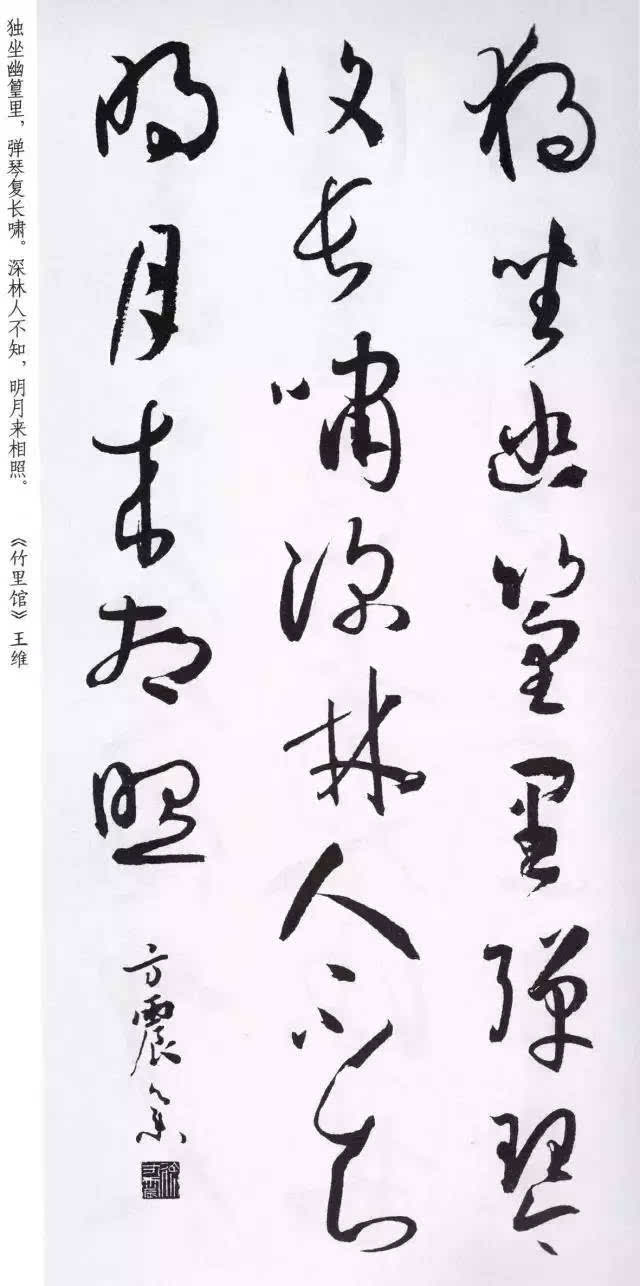 獨坐幽篁里彈琴
復長嘯深林人不知
明月來相照
方震
独坐幽篁里，弹琴复长啸。深林人不知，明月来相照。 《竹里馆》王维